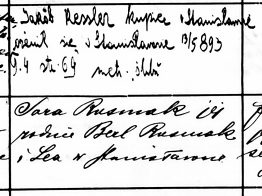 Jakób Kessler kupiec w Stanisławowie
ożenił się w Stanisławowie 13/5 893
9.4 str 69 metr. ślub
Sara Rusmak iż
rodzic Berl Rusmak
i Lea w Stanisławowie